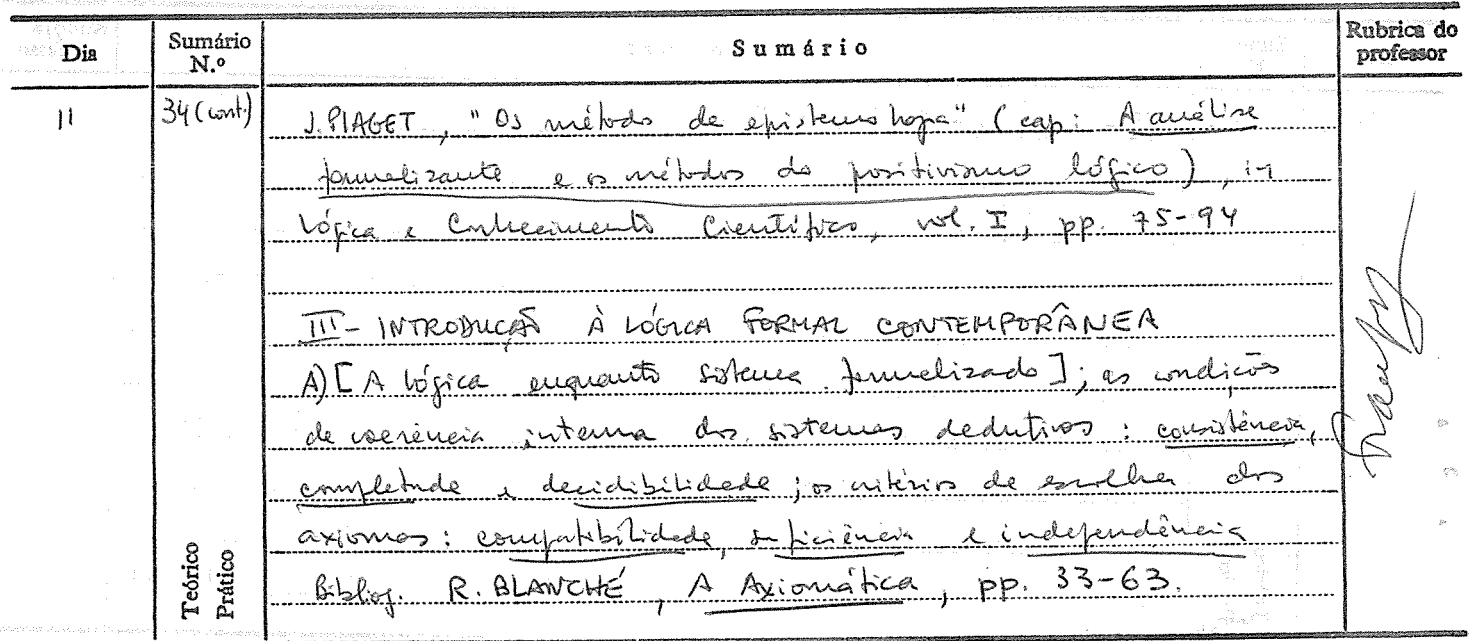 Dia Sumário N.º Sumário Rubrica do professor
11 34 (cont.) J. PIAGET, "Os método de epistemologia" (cap: A análise
formalizante e os métodos do positivismo lógico), in
Lógica e Conhecimento Científico, vol. I, pp. 75-94
III - INTRODUÇÃO À LÓGICA FORMAL CONTEMPORÂNEA
A) [A lógica enquanto sistema formalizado]; as condições
de coerência interna dos sistemas dedutivos: consistência,
completude e decidibilidade; os critérios de escolha dos
axiomas: compatibilidade, suficiência e independência
Bibliog. R. BLANCHÉ, A Axiomática, pp. 33-63.
Teórico
Prático